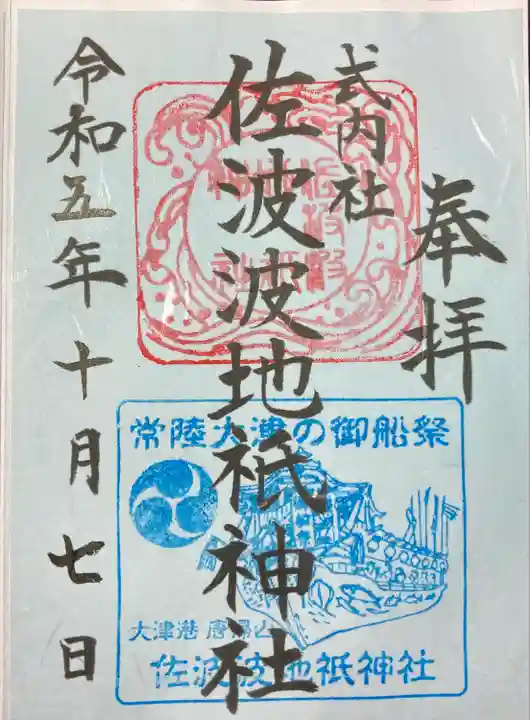 奉拝
式内社
佐波波地祇神社
令和五年十月七日
常陸大津の御船祭
大津港 唐帰山
佐波波地祇神社